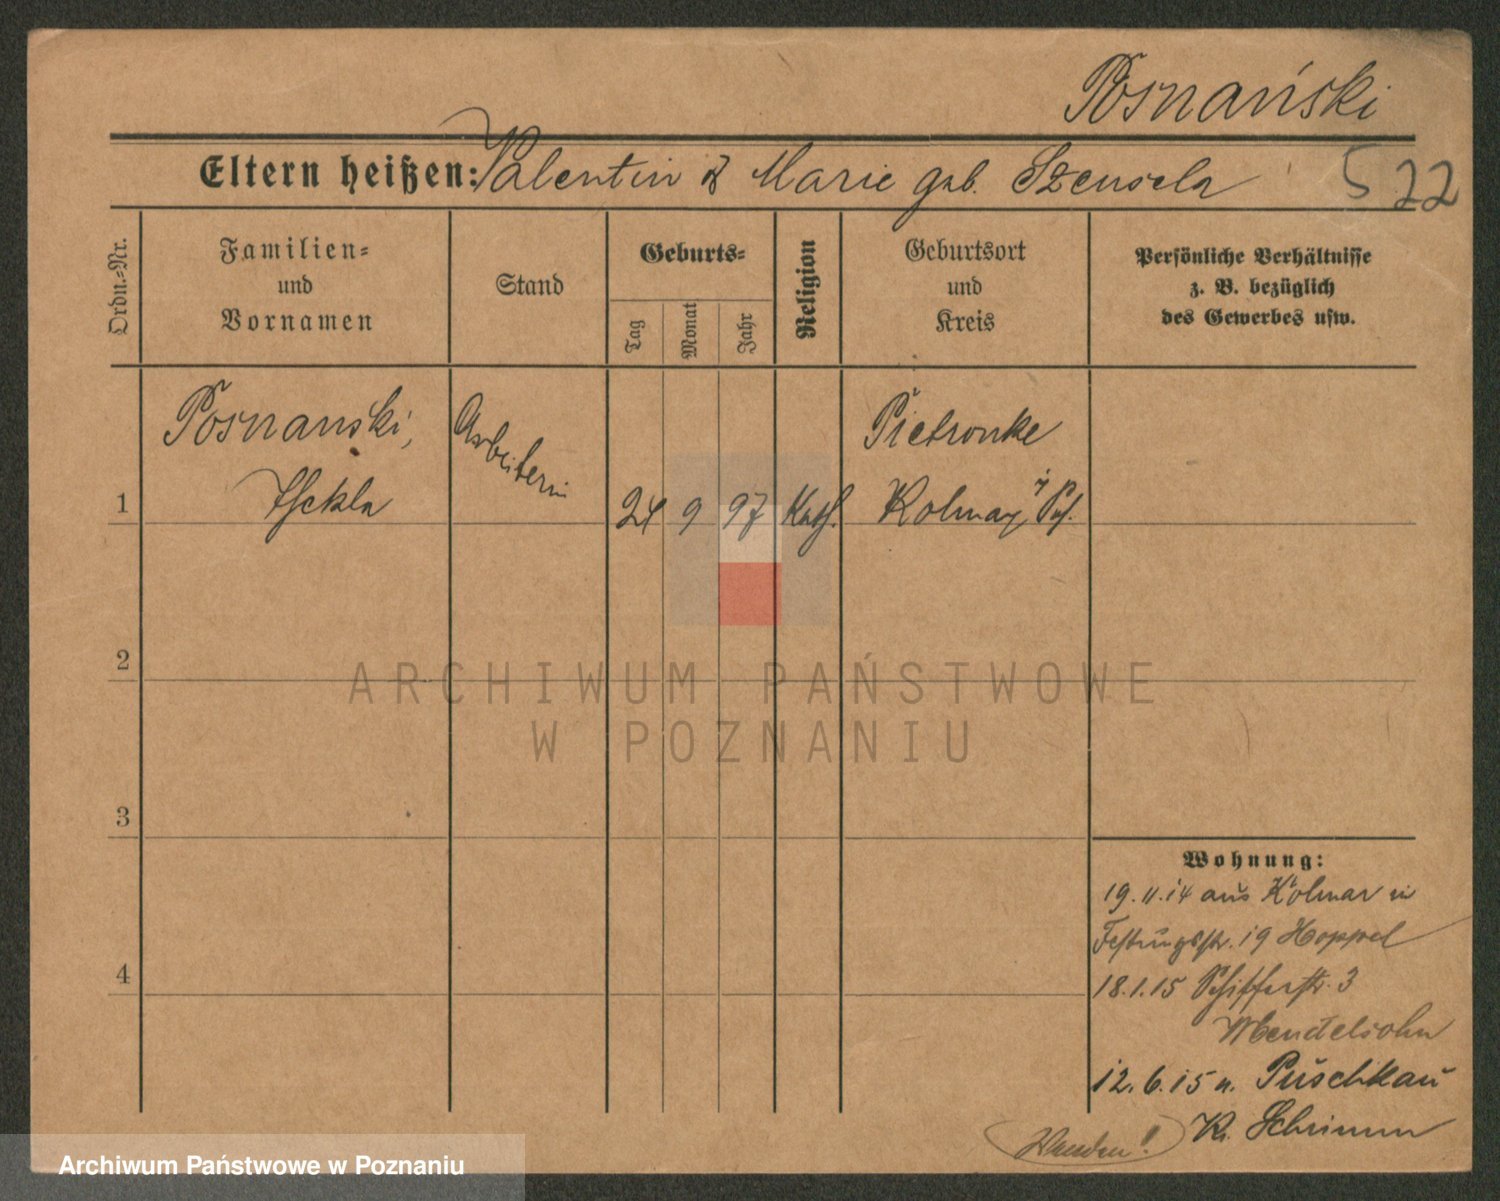 Posnański
Eltern heißen: Valentin & Marie geb. Szensela
522
Ordn.-Nr.
Familien-
und
Vornamen
Stand
Geburts-
Tag
Monat
Jahr
Religion
Geburtsort
und
Kreis
Persönliche Verhältnisse
z. B. bezüglich
des Gewerbes usw.
1
Posnanski,
Thekla
Arbeiterin
24
9
97
Kath.
Pietronke
Kolmar i/P.
2
3
4
Wohnung:
19.11.14 aus Kolmar in
Festungsstr. 19 Hoppel
18.1.15 Schifferstr. 3
Mendelsohn
12.6.15 n. Puschkau
Kr. Schrimm
ARCHIWUM PAŃSTWOWE
W POZNANIU
Archiwum Państwowe w Poznaniu